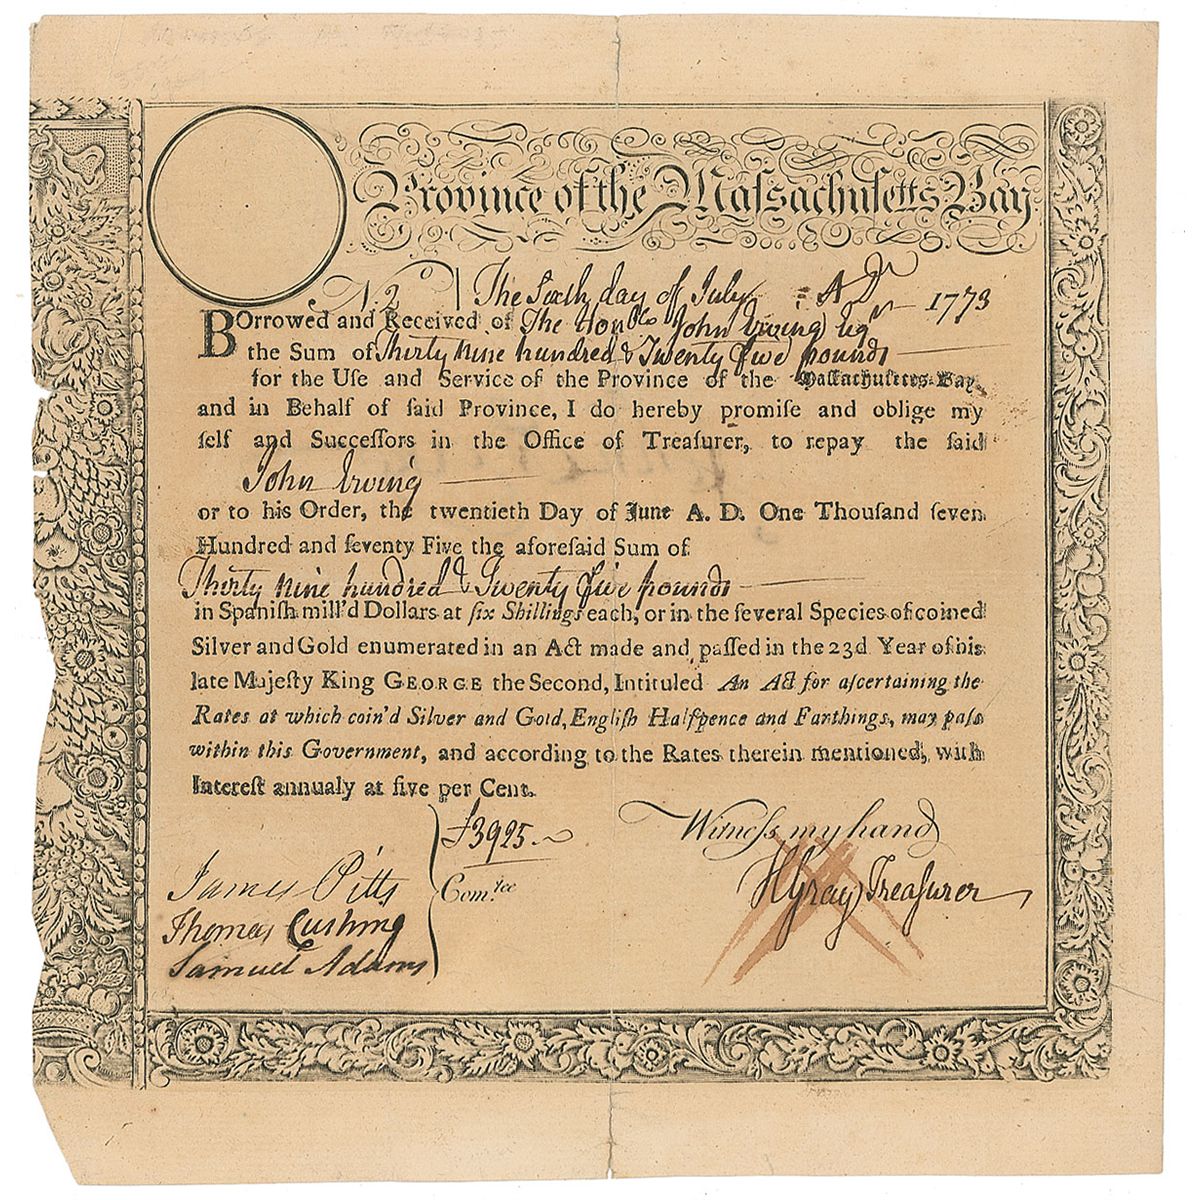 Province of the Maſsachuſetts Bay
N. 2 The Sixth day of July A D 1773
BOrrowed and Received of The Honble John Erving Eqr
the Sum of Thirty Nine hundred & Twenty five pounds
for the Uſe and Service of the Province of the Maſſachuſetts-Bay
and in Behalf of ſaid Province, I do hereby promiſe and oblige my
ſelf and Succeſſors in the Office of Treaſurer, to repay the ſaid
John Erving
or to his Order, the twentieth Day of June A. D. One Thouſand ſeven
Hundred and ſeventy Five the aforeſaid Sum of
Thirty Nine hundred & Twenty five pounds
in Spaniſh mill'd Dollars at ſix Shillings each, or in the ſeveral Species of coined
Silver and Gold enumerated in an Act made and paſſed in the 23d Year of his
late Majeſty King GEORGE the Second, Intituled An Act for aſcertaining the
Rates at which coin'd Silver and Gold, Engliſh Halfpence and Farthings, may paſs
within this Government, and according to the Rates therein mentioned, with
Intereſt annualy at five per Cent.
£3925
Witneſs my hand
James Pitts
Com.tee
HGray Treaſurer
Thomas Cushing
Samuel Adams